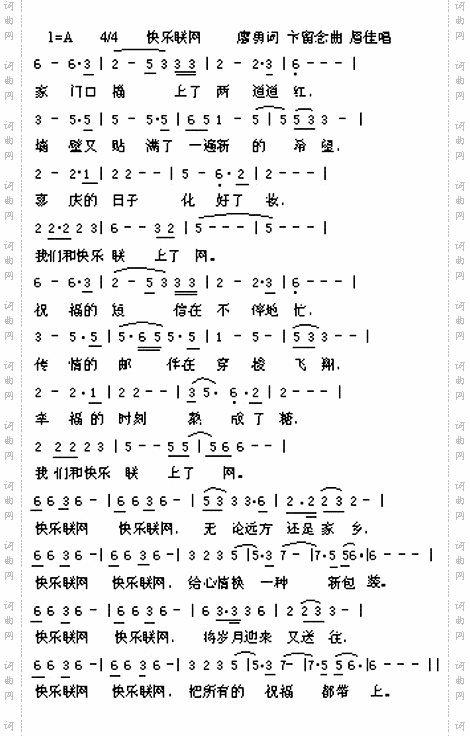 1=A 4/4 快乐联网 廖勇词 卞留念曲 周佳唱
6 - 6·3 | 2 - 5 3 3 3 | 2 - 2·3 | 6 - - - |
家 门口 福 上了 两 道道 红,
3 - 5·5 | 5 - 5·5 | 6 5 1 - 5 | 5 5 3 3 - |
墙 壁又 贴 满了 一遍新 的 希 望,
2 - 2·1 | 2 2 - - | 5 - 6·2 | 2 - - - |
喜 庆的 日子 化 好了 妆,
2 2·2 2 3 | 6 - - 3 2 | 5 - - - | 5 - - - |
我们和快乐 联 上了 网。
6 - 6·3 | 2 - 5 3 3 3 | 2 - 2·3 | 6 - - - |
祝 福的 短 信在 不 停地 忙,
3 - 5·5 | 5·6 5 5·5 | 1 - 5 - | 5 3 3 - - |
传 情的 邮 件在 穿 梭 飞 翔,
2 - 2·1 | 2 2 - - | 3 5· 6·2 | 2 - - - |
幸 福的 时刻 熬 成了 糖,
2 2 2 2 3 | 5 - - 5 5 | 5 6 6 - - |
我们和快乐 联 上了 网。
6 6 3 6 - | 6 6 3 6 - | 5 3 3 3·6 | 2·2 2 3 2 - |
快乐联网 快乐联网, 无 论远方 还是家 乡,
6 6 3 6 - | 6 6 3 6 - | 3 2 3 5 | 5·3 7 - | 7·5 5 6· | 6 - - - |
快乐联网 快乐联网, 给心情换 一种 新包 装。
6 6 3 6 - | 6 6 3 6 - | 6 3·3 3 6 | 2 2 3 3 - |
快乐联网 快乐联网, 将岁月迎来 又送 往,
6 6 3 6 - | 6 6 3 6 - | 3 2 3 5 | 5·3 7 - | 7·5 5 6· | 6 - - - ||
快乐联网 快乐联网, 把所有的 祝福 都带 上。
词曲网
词曲网
词曲网
词曲网
词曲网
词曲网
词曲网
词曲网
词曲网
词曲网
词曲网
词曲网
词
词曲网
词曲网
词曲网
词曲网
词曲网
词曲网
词曲网
词曲网
词曲网
词曲网
词曲网
词曲网
词